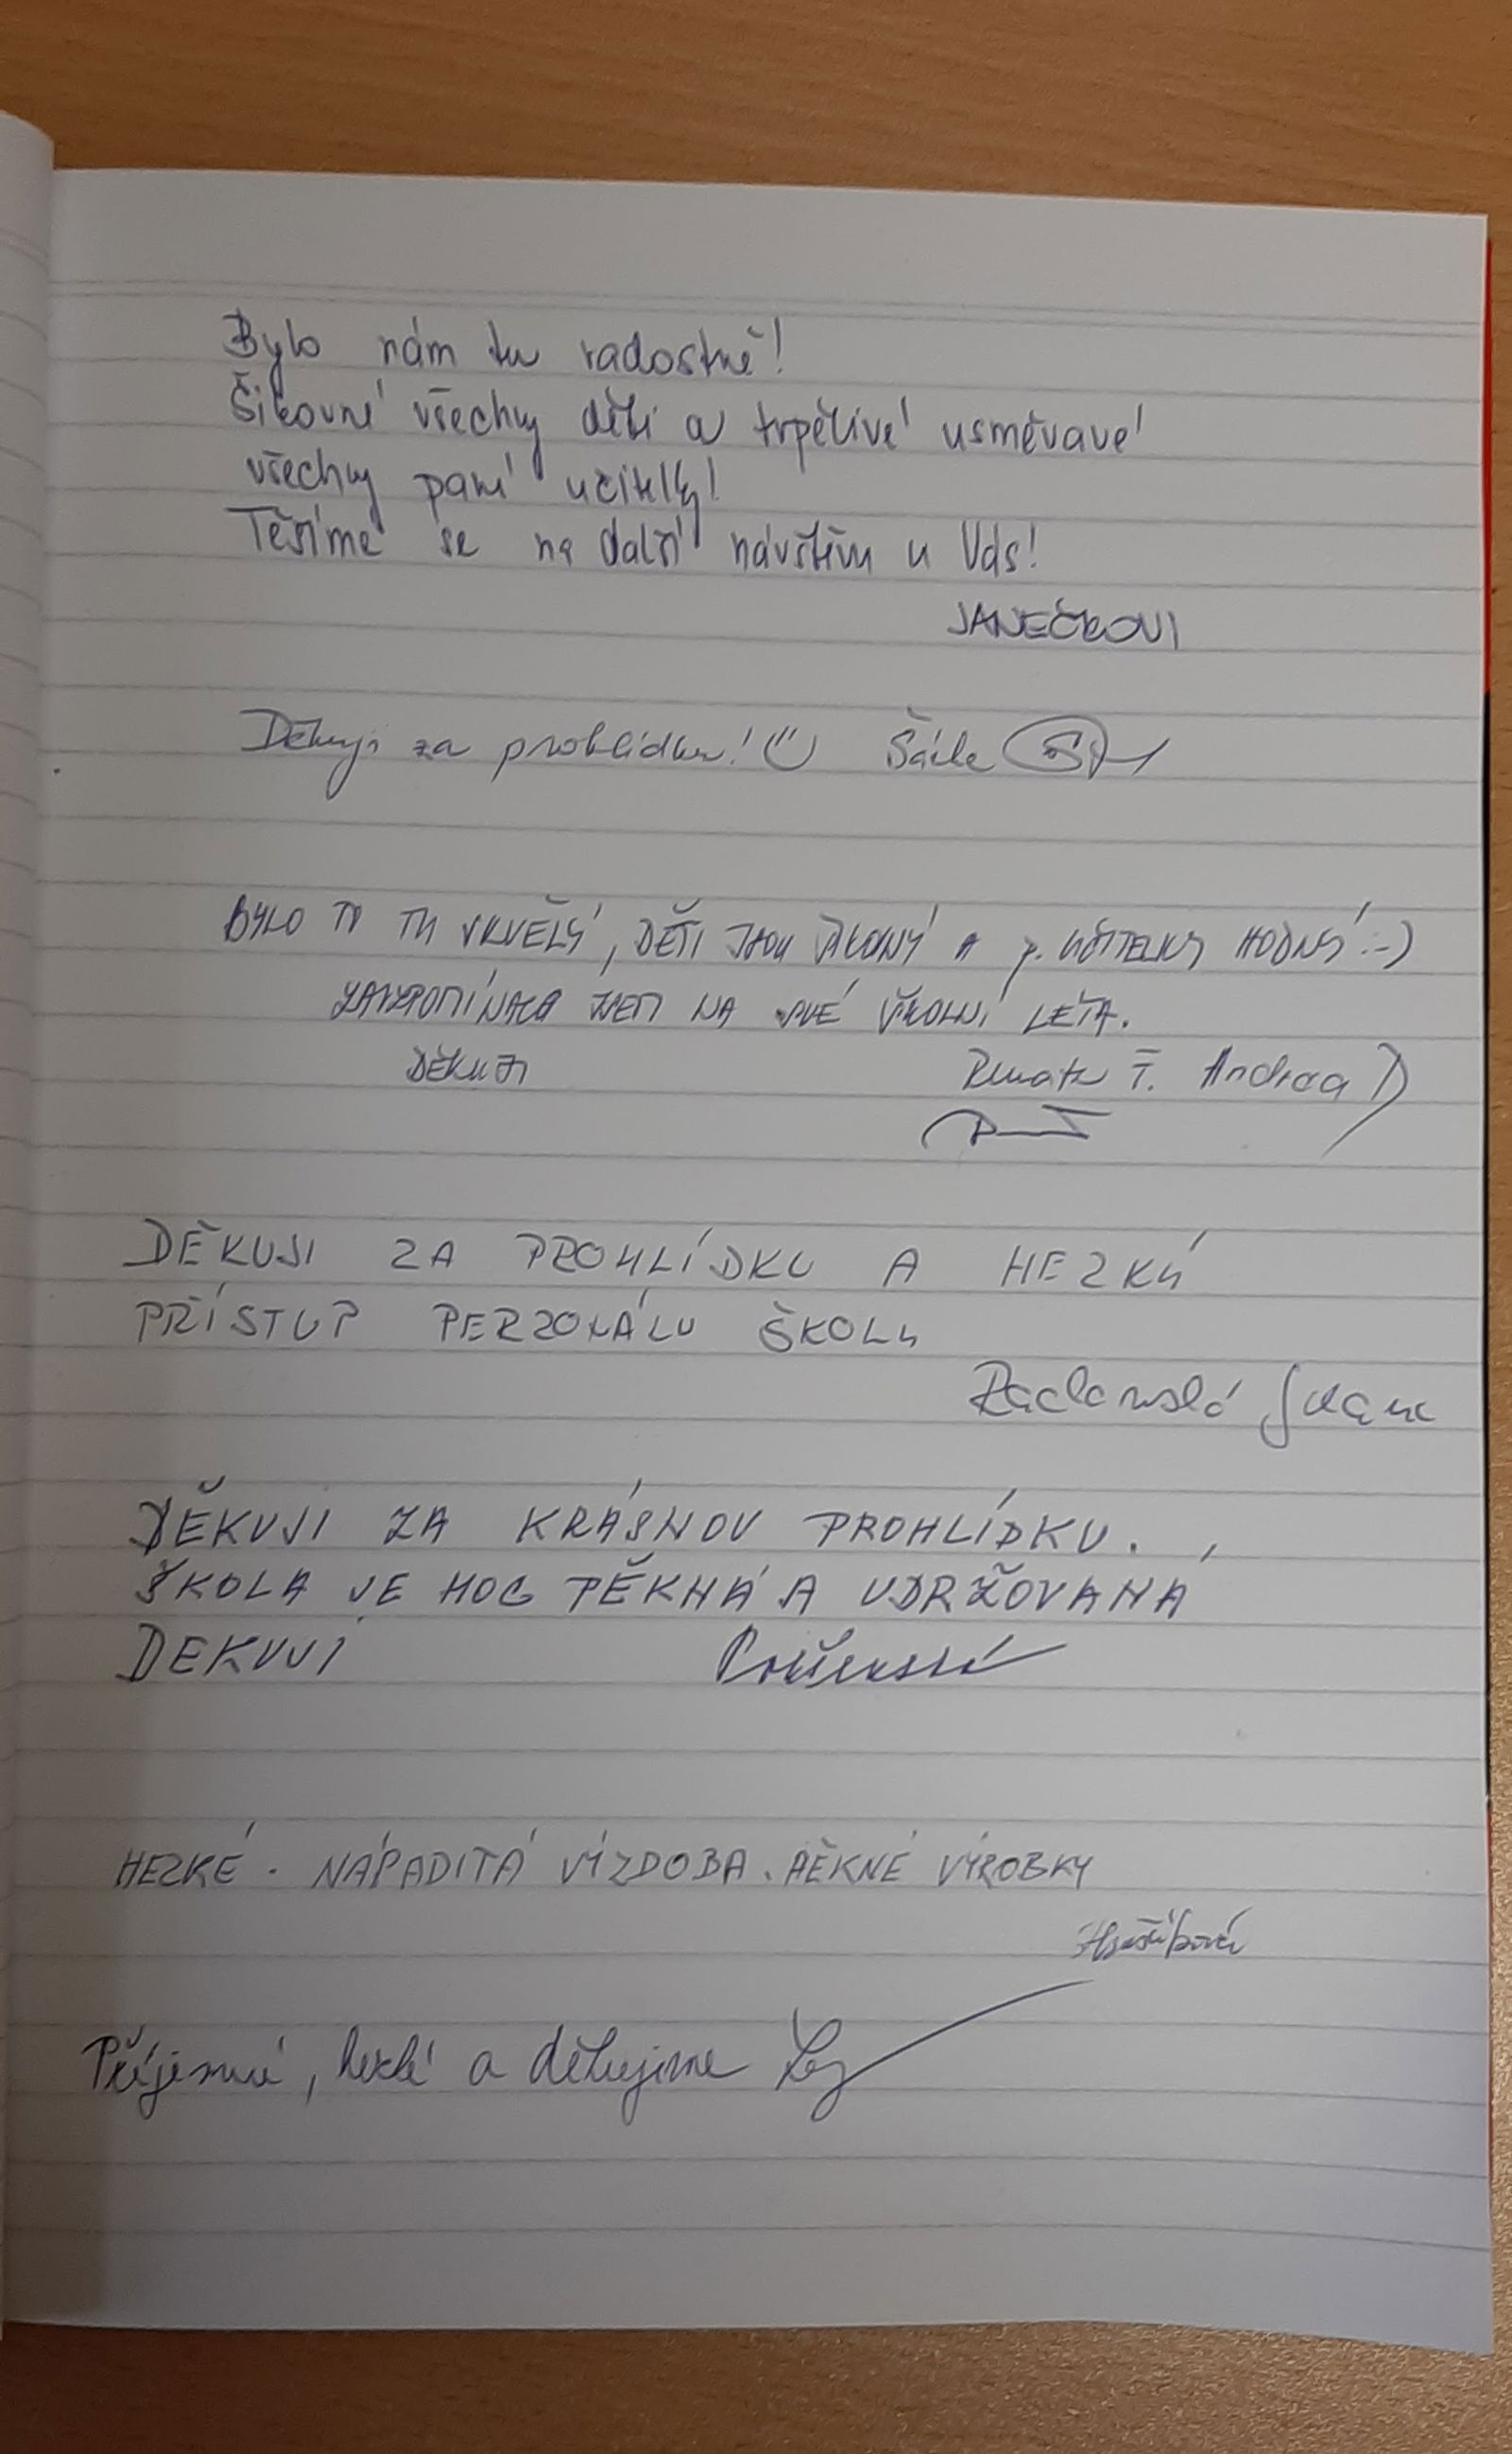 Bylo nám tu radostně!
Šikovné všechny děti a trpělivé usměvavé
všechny paní učitelky!
Těšíme se na další návštěvu u Vás!
JANEČKOVI
Děkuji za prohlídku! Šárka
BYLO TO TU SKVĚLÝ, DĚTI JSOU ŠIKOVNÝ A p. UČITELKY HODNÝ :-)
ZAVZPOMÍNALA JSEM NA SVÉ ŠKOLNÍ LÉTA.
DĚKUJI Renata T. Andrea D
DĚKUJI ZA PROHLÍDKU A HEZKÝ
PŘÍSTUP PERZONÁLU ŠKOLY
DĚKUJI ZA KRÁSNOU PROHLÍDKU.
ŠKOLA JE MOC PĚKNÁ A UDRŽOVANÁ
DEKUJI
HEZKÉ. NÁPADITÁ VÝZDOBA. PĚKNÉ VÝROBKY
Příjemné, hezké a děkujeme